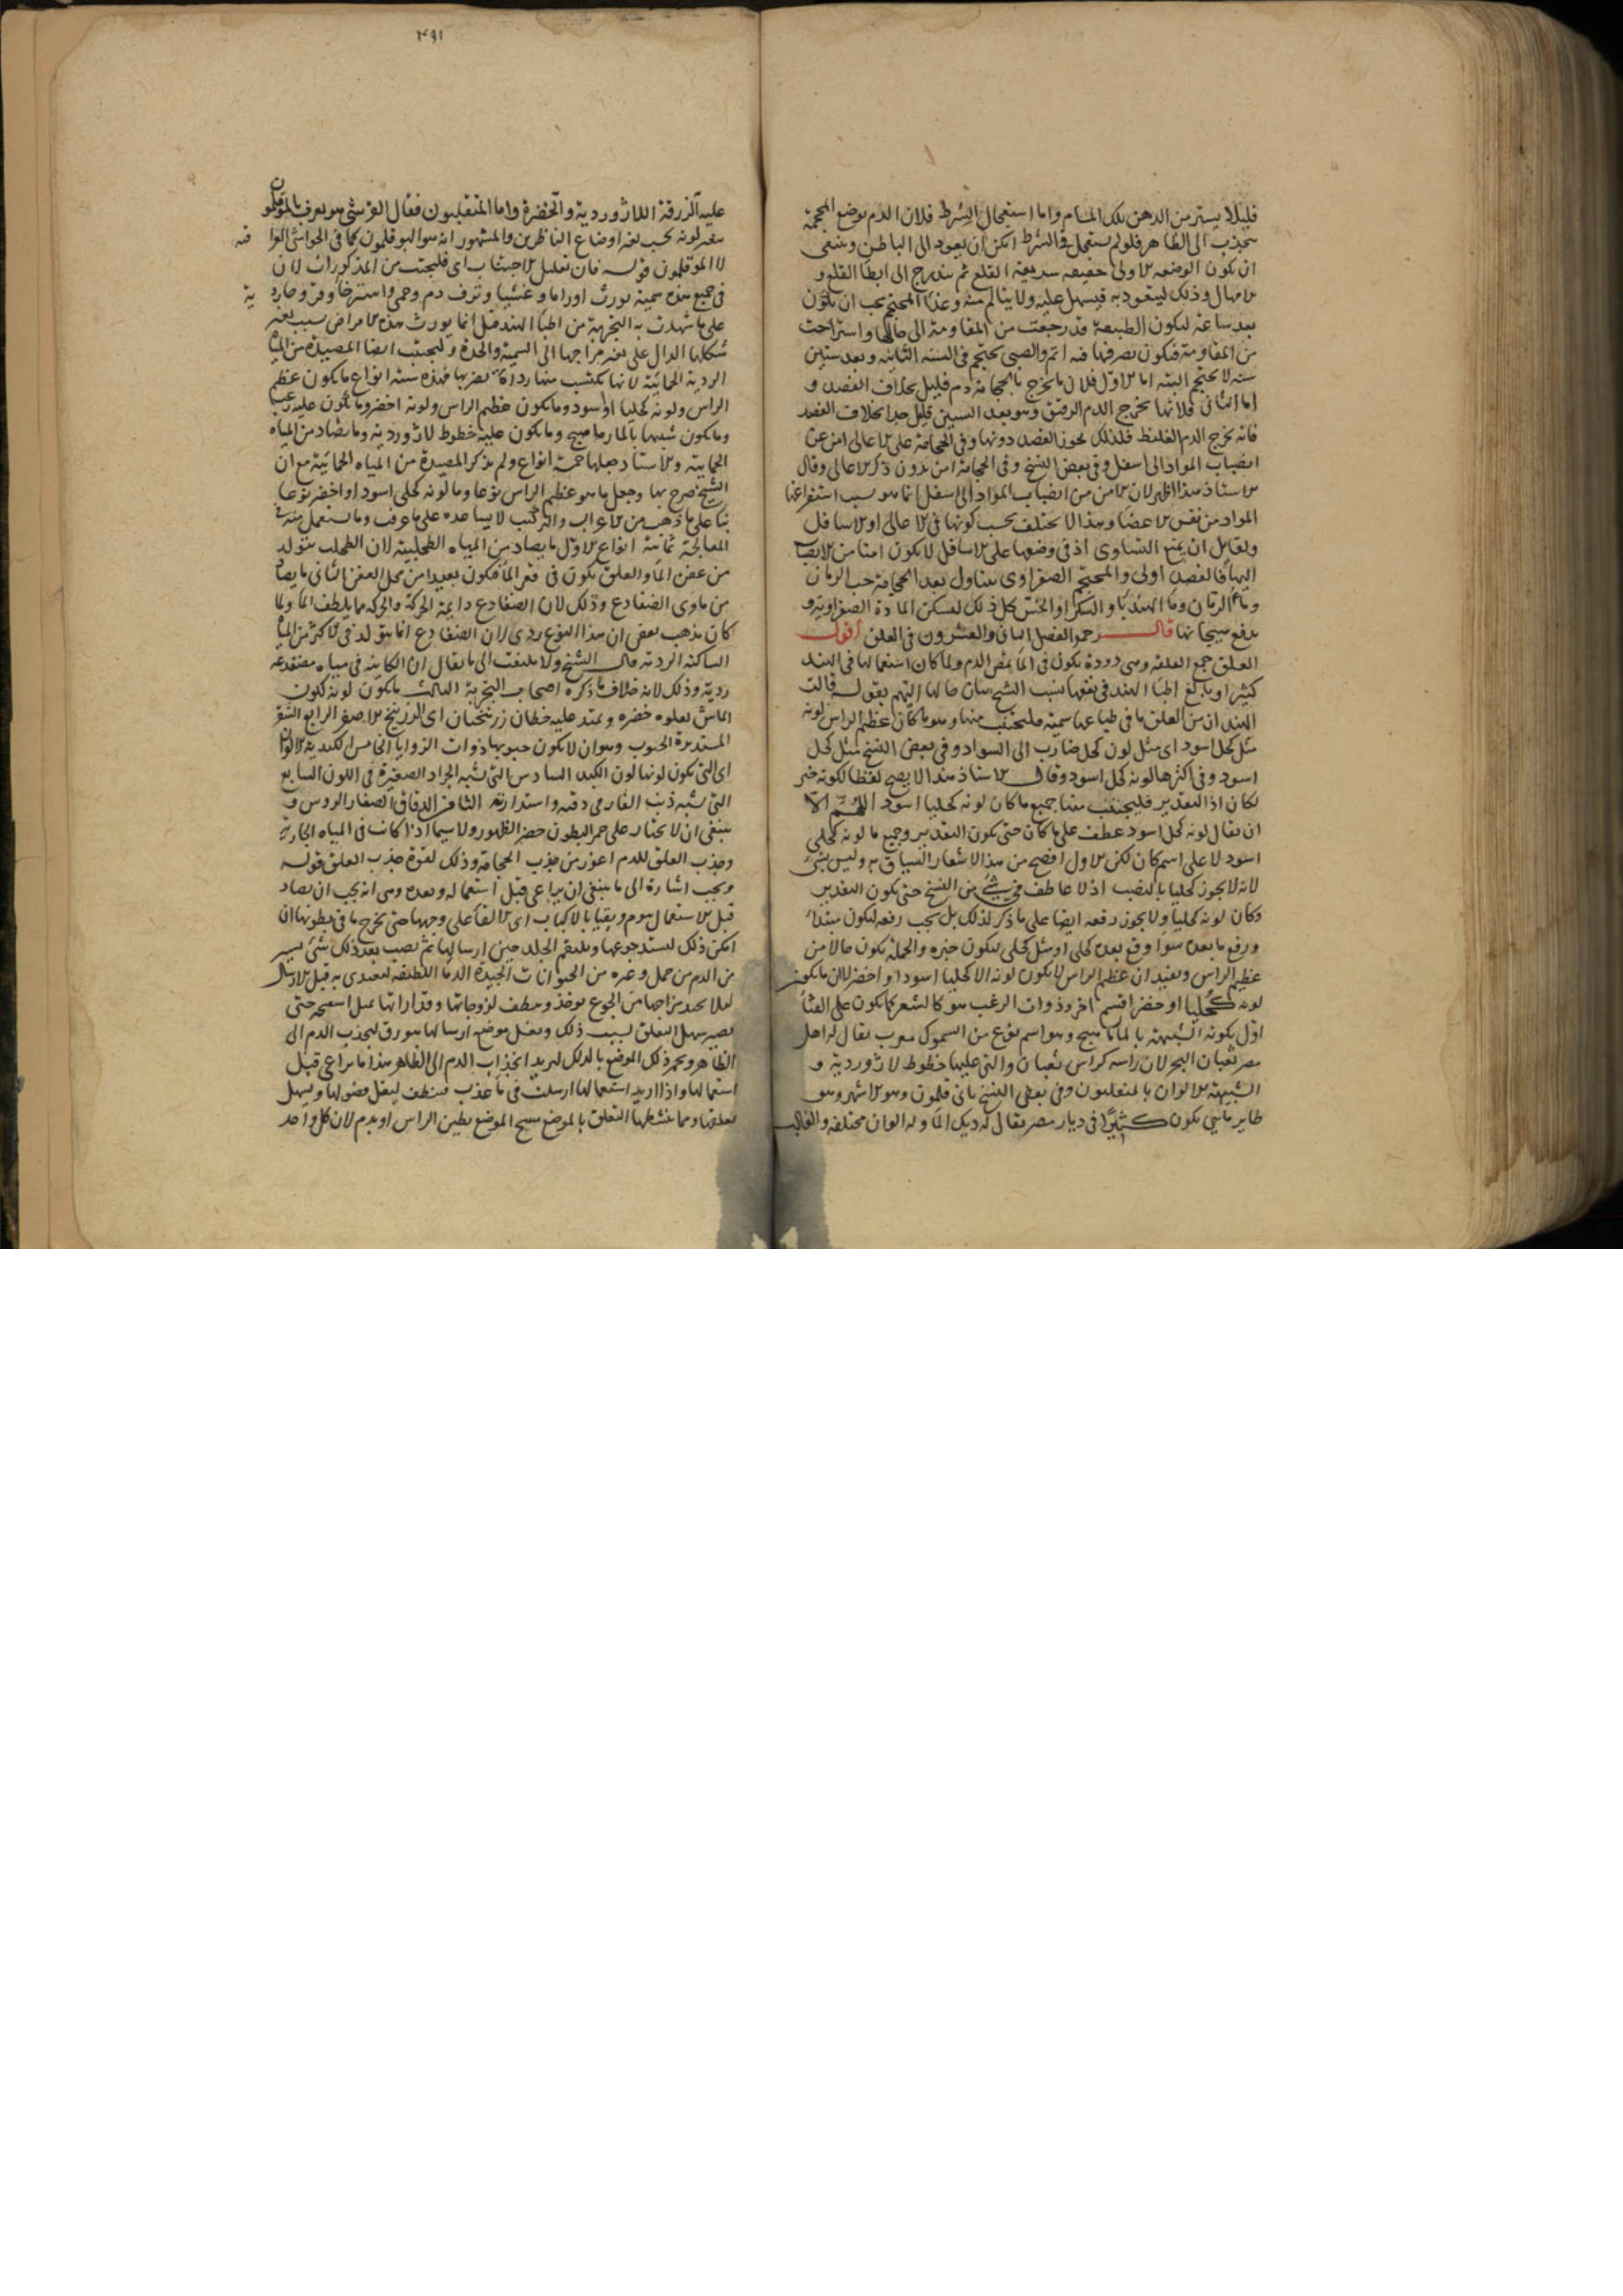 قليلا يستر من الدهن تلك المسام واما استعجال الشرط فلان الدم موضع المحجمة
ينجذب الى الظاهر فلو لم يستعجل فى الشرط امكن ان يعود الى الباطن وينبغى
ان يكون الوضعه الاولى خفيفه سريعة القلع ثم يتدرج الى ابطا القلع و
الامهال وذلك ليتعود به فيسهل عليه ولا يتالم منه وغذا المحتجم يجب ان يكون
بعد ساعة ليكون الطبيعة قد رجعت من المقاومة الى حالها واستراحت
من المقاومة فيكون تصرفها فيه اتم والصبى يحتجم فى السنه الثانيه وبعد ستين
سنه لا يحتجم البته اما الاول فلان ما يخرج بالحجامة دم قليل بخلاف الفصد و
اما الثانى فلانها يخرج الدم الرقيق وهو بعد الستين قليل جدا بخلاف الفصد
فانه يخرج الدم الغليظ فلذلك يجوز الفصد دونها وفى الحجامة على الاعالى امن عن
انصباب المواد الى اسفل وفى بعض النسخ وفى الحجامة امن بدون ذكر الاعالى وقال
الاستاذ هذا اظهر لان الامن من انصباب المواد الى اسفل انما هو بسبب استفراغها
المواد من نفس الاعضا وهذا لا يختلف بحسب كونها فى الاعالى او الاسافل
ولقايل ان يمنع التساوى اذ فى وضعها على الاسافل لا يكون امنا من الانصباب
اليها فالفصد اولى والمحتجم الصفراوى يتناول بعد الحجامة حب الرمان
وماء الرمان وما الهندبا والسكر او الخس كل ذلك لتسكن المادة الصفراويه و
يدفع هيجانها قال رحمه الفصل الثانى والعشرون فى العلق اقول
العلق جمع العلقه وهى دودة يكون فى الما يمص الدم ولما كان استعمالها فى الهند
كثيرا وبالغ اطبا الهند فى نفعها نسب الشيخ بيان حالها اليهم بقوله قالت
الهند ان من العلق ما فى طباعها سميه فليجتنب منها وهو ما كان عظيم الراس لونه
مثل كحل اسود اى مثل لون كحل ضارب الى السواد وفى بعض النسخ مثل كحل
اسود وفى اكثرها لونه كحل اسود وقال الاستاذ هذا لا يصح لفظا لكونه خبر
لكان اذ التقدير فليجتنب منها جميع ما كان لونه كحليا اسود اللهم الا
ان يقال لونه كحل اسود عطف على ما كان حتى يكون التقدير وجميع ما لونه كحلى
اسود لا على اسم كان لكن الاول افصح من هذا لاشعار السياق به وليس بشئ
لانه لا يجوز كحليا بالنصب اذ لا عاطف فى شئ من النسخ حتى يكون التقدير
وكان لونه كحليا ولا يجوز رفعه ايضا على ما ذكر لذلك بل يجب رفعه ليكون مبتدا
ورفع ما بعده سوا وقع بعده كحلى او مثل كحلى ليكون خبره والجملة يكون حالا من
عظيم الراس ويفيد ان عظيم الراس لا يكون لونه الا كحليا اسود او اخضر لان ما يكون
لونه كحليا او خضر اقسم اخر وذوات الزغب هو كالشعر كما يكون على القثا
اول يكونه الشبيهة بالمارماهيج وهو اسم نوع من السموك معرب يقال له اهل
مصر ثعبان البحر لان راسه كراس ثعبان والتى عليها خطوط لازوردية و
الشبيهة الالوان بالمتقلبون وفى بعض النسخ بابى قلمون وهو الاشهر وهو
طاير مايى يكون كثيرا فى ديار مصر يقال له ديك الما وله الوان مختلفه والغالب
٣٩١
عليه الزرقة اللازوردية والخضرة واما المتقلبون فقال القرشى هو يعرف بالموقلمون
يتغير لونه بحسب تغير اوضاع الناظرين والمشهور انه هو البوقلمون كما فى الحواشى العراقيه
لا الموقلمون قوله فان تعليل الاجتناب اى فليجتنب من المذكورات لان
فى جميع هذه سمية يورث اوراما وغشيا ونزف دم وحمى واسترخا وقروحا ردية
على ما شهدت به التجربة من اطبا الهند قيل انما يورث هذه الامراض بسبب تغير
شكلها الدال على تغير مزاجها الى السمية والحدة وليجتنب ايضا المصيدة من المياه
الردية الحمائية لانها يكتسب منها رداة يضر بها فهذه ستة انواع ما يكون عظيم
الراس ولونه كحليا او اسود وما يكون عظيم الراس ولونه اخضر وما يكون عليه زغب
وما يكون شبيها بالمارماهيج وما يكون عليه خطوط لازوردية وما يصاد من المياه
الحمايية والاستاد جعلها خمسة انواع ولم يذكر المصيدة من المياه الحمائية مع ان
الشيخ صرح بها وجعل ما هو عظيم الراس نوعا وما لونه كحلى اسود او اخضر نوعا
بنا على ما ذهب من الاعراب والتركيب لا يساعده على ما عرفت وما يستعمل منه فى
المعالجة ثمانية انواع الاول ما يصاد من المياه الطحلبية لان الطحلب يتولد
من عفن الما والعلق يكون فى قعر الما فيكون بعيدا من محل العفن الثانى ما يصاد
من ماوى الضفادع وذلك لان الضفادع دايمة الحركة والحركه مما يلطف الما ولما
كان يذهب بعض ان هذا النوع ردى لان الضفادع انما يتولد فى الاكثر من المياه
الساكنه الرديه قال الشيخ ولا يلتفت الى ما يقال ان الكاينه فى مياه مضفدعه
ردية وذلك لانه خلاف ما ذكره اصحاب التجربة الثالث ما يكون لونه كلون
الماش يعلوه خضره ويمتد عليه خطان زرنيخيان اى الزرنيخ الاصفر الرابع الشقر
المستديرة الجنوب وهو ان لا يكون جنوبها ذوات الزوايا الخامس الكبدية الالوان
اى التى يكون لونها لون الكبد السادس التى تشبه الجراد الصغيرة فى اللون السابع
التى يشبه ذنب الفار فى دقته واستدارته الثامن الدقاق الصغار الروس و
ينبغى ان لا يختار على حمر البطون خضر الظهور ولا سيما اذا كانت فى المياه الجارية
وجذب العلق للدم اغور من جذب الحجامة وذلك لقوة جذب العلق قوله
ويجب اشارة الى ما ينبغى ان يراعى قبل استعماله وبعده وهى انه يجب ان يصاد
قبل الاستعمال بيوم ويقيا بالاكباب اى الالقا على وجهها حتى يخرج ما فى بطونها ان
امكن ذلك ليشتد جوعها ويلتقم الجلد حين ارسالها ثم يصب بعد ذلك شئ يسير
من الدم من حمل وغيره من الحيوانات الجيدة الدما اللطيفه ليغتدى به قبل الارسال
ليلا يحتد مزاجها من الجوع يوخذ وينظف لزوجاتها وقذاراتها بمثل اسفنجه حتى
يصير سهل التعلق بسبب ذلك ويغسل موضع ارسالها ببورق لينجذب الدم الى
الظاهر ويحمر ذلك الموضع بالدلك ليزيد انجذاب الدم الى الظاهر هذا ما يراعى قبل
استعمالها واذا اريد استعمالها ارسلت فى ما عذب فينظف ليقل فضولها ويسهل
تعلقها ومما ينشطها التعلق بالموضع مسح الموضع بطين الراس او بدم لان كل واحد